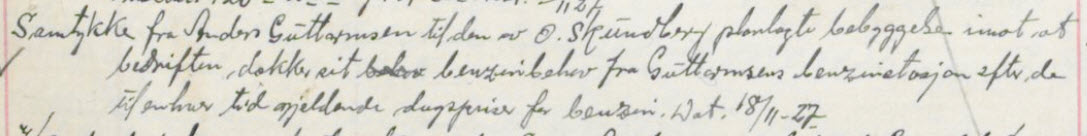 11 27
Samtykke fra Anders Guttormsen til den av O. Skundberg planlagte bebyggelse imot at
bedriften dekker sit behov benzinbehov fra Guttormsens benzinstasjon efter de
til enhver tid gjeldende dagspriser for benzin. Dat. 18/11-27